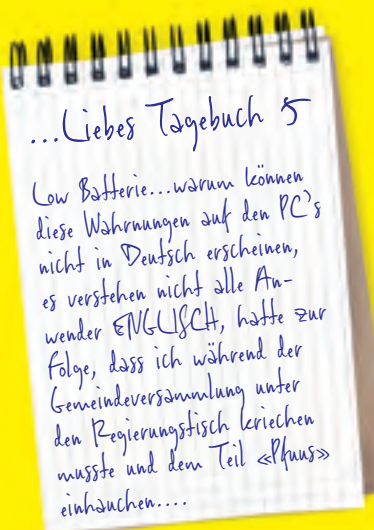 ...Liebes Tagebuch 5
Low Batterie...warum können
diese Wahrnungen auf den PC's
nicht in Deutsch erscheinen,
es verstehen nicht alle An-
wender ENGLISCH, hatte zur
Folge, dass ich während der
Gemeindeversammlung unter
den Regierungstisch kriechen
musste und dem Teil «Pfuus»
einhauchen....